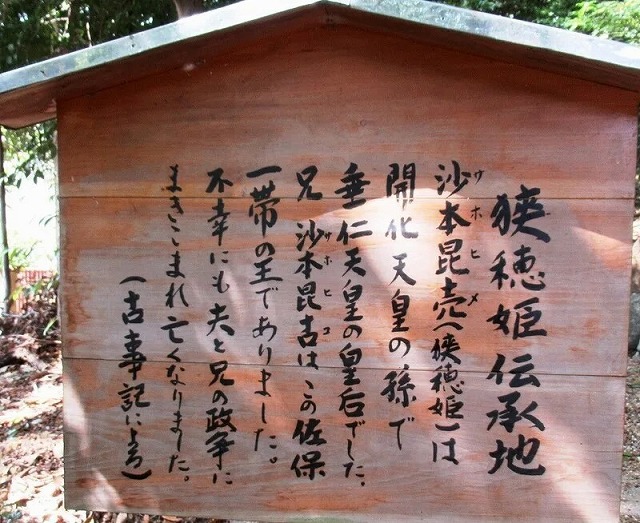 狹穂姫伝承地
沙本昆売(狭穂姫)は
サホヒメ
開化天皇の孫で
垂仁天皇の皇后でした。
兄 沙本昆古はこの佐保
サホヒコ
一帯の王でありました。
不幸にも夫と兄の政争に
まきこまれ亡くなりました。
(古事記による)